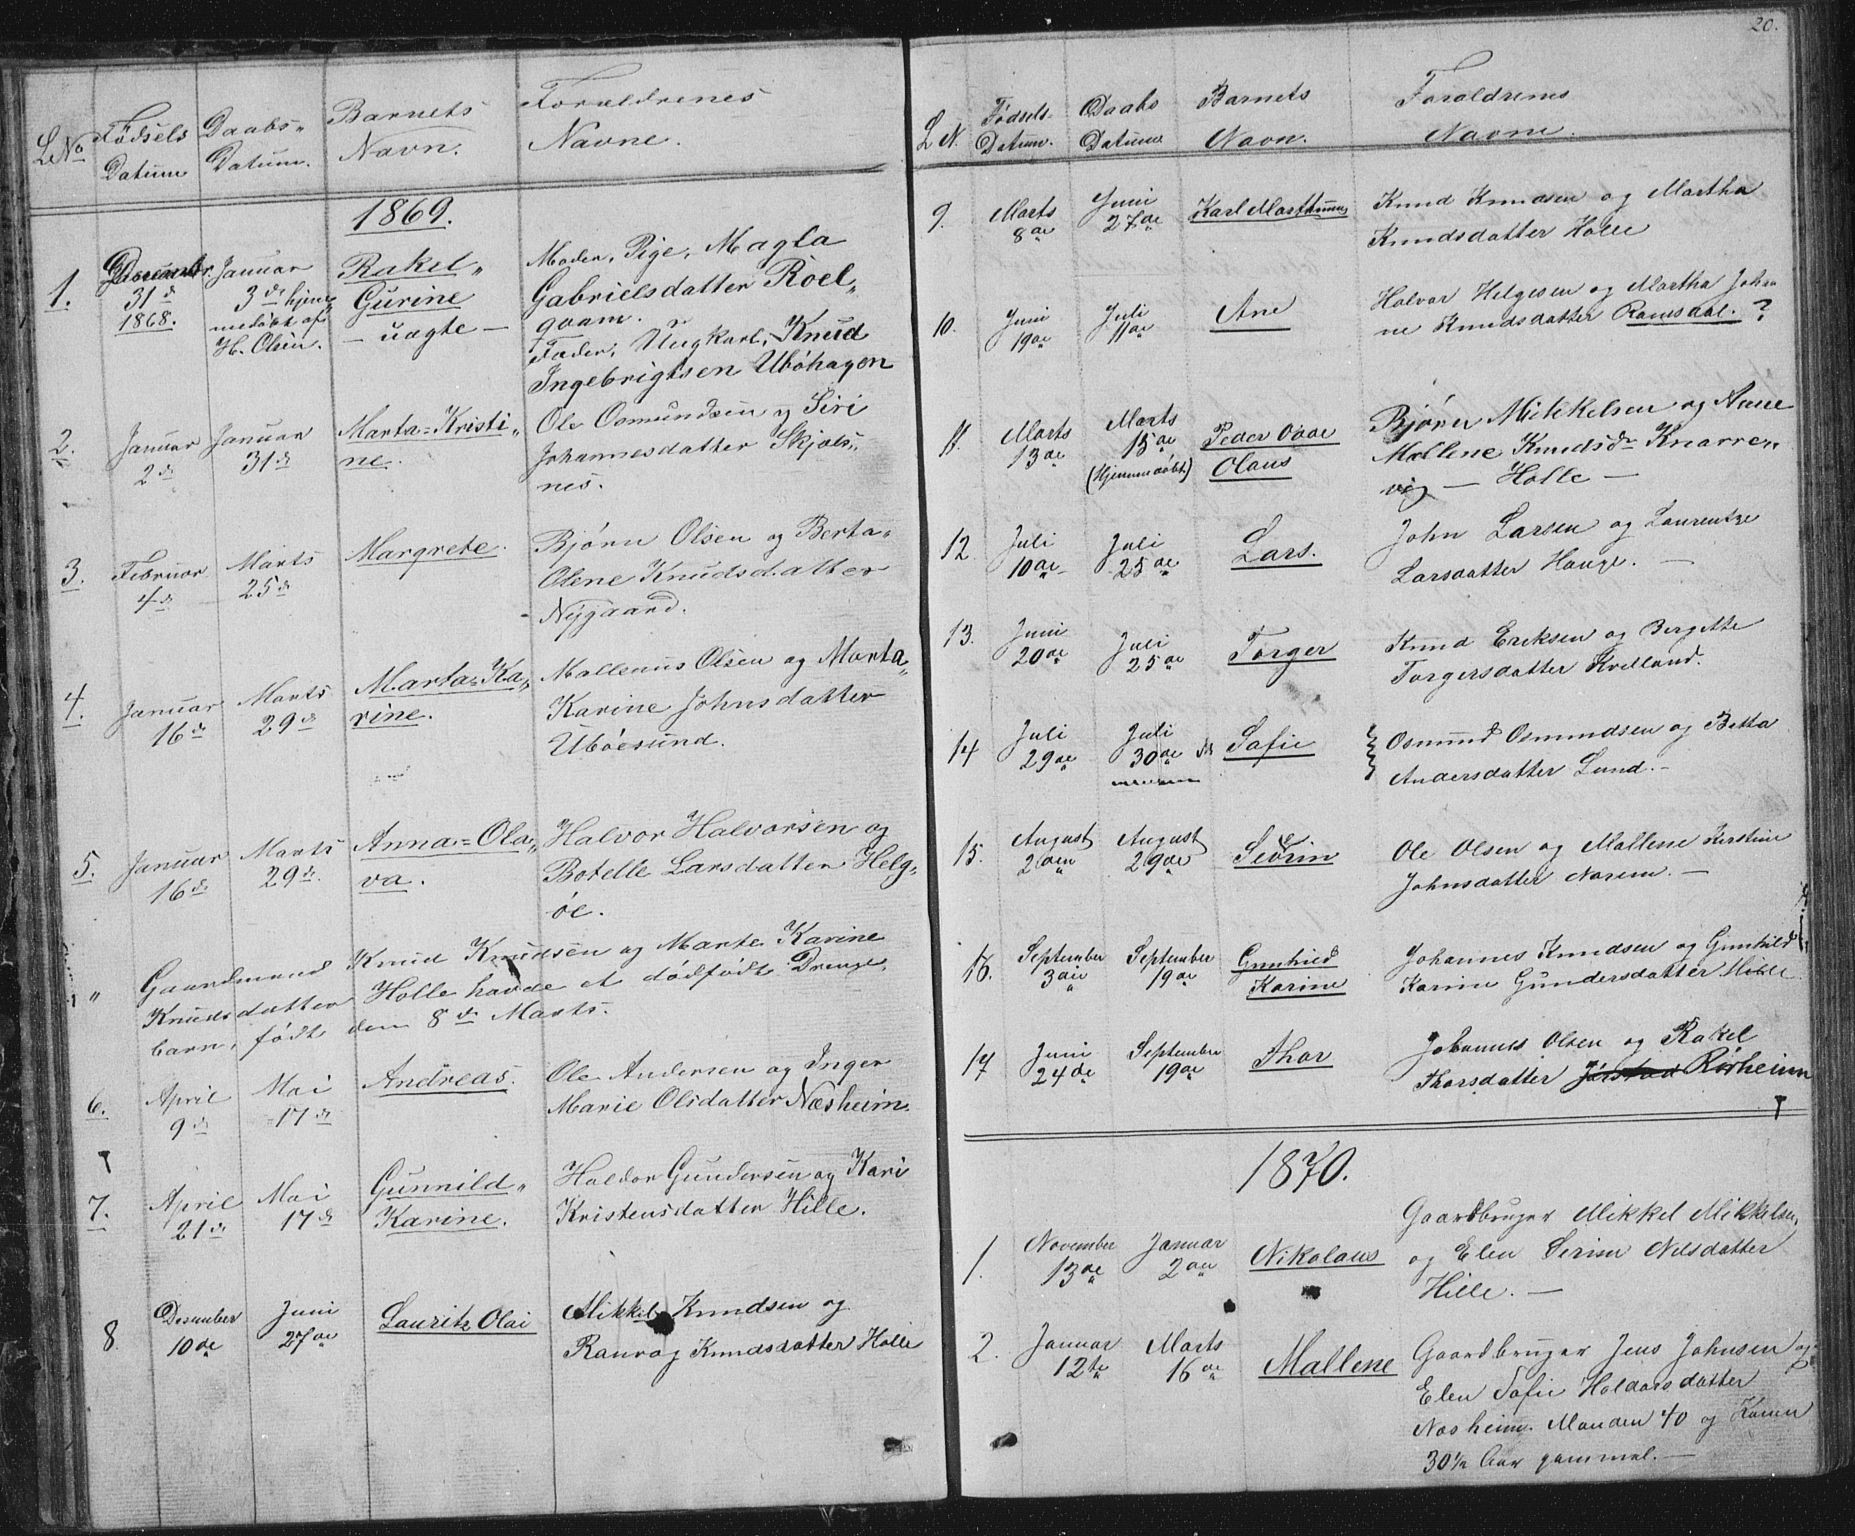 L.No
Fødsels
Datum
Daabs-
Datum.
Barnets
Navn.
Forældrenes
Navne.
1869.
1.
Decembr.
31 d
1868.
Januar
3 die hjem-
medøbt af
H. Olsen.
Rakel-
Gurine
- uægte -
Moder, Pige, Magla
Gabrielsdatter Roel-
qvam.
Fader, Ungkarl, Knud
Ingebrigtsen Ubøhagen
2.
Januar
2 d
Januar
31 d
Marta=Kristi-
ne.
Ole Osmundsen og Siri
Johannesdatter Skjøls-
nes.
3.
Februar
4 d
Marts
25 d
Margrete.
Bjørn Olsen og Berta-
Olene Knudsdatter
Nygaard.
4.
Januar
16 d
Marts
29 d
Marta=Ka-
rine.
Mallenus Olsen og Marta-
Karine Johnsdatter
Ubøesund.
5.
Januar
16 d
Marts
29 d.
Anna=Ola-
va.
Halvor Halvorsen og
Botelle Larsdatter Helg-
øe.
" Gaardmand Knud Knudsen og Marte Karine
Knudsdatter Holle havde et dødfødt Drenge-
barn, født den 8 de Marts.
6.
April
9 d
Mai
17 d
Andreas.
Ole Andersen og Inger
Marie Olsdatter Næsheim.
7.
April
21 d
Mai
17 d
Gunnild-
Karine.
Haldor Gundersen og Kari
Kristensdatter Hille.
8
Desember
10 de
Juni
27 de
Lauritz Olai
Mikkel Knudsen og
Ranvog Knudsdatter Holle
20.
L N.
Fødsels-
Datum.
Daabs
Datum
Barnets
Navn.
Foraldrenes
Navne.
9.
Marts
8 de
Juni
27 de
Karl Marthinus
Knud Knudsen og Martha
Knudsdatter Holle
10.
Juni
19 de
Juli
11 de
Ane
Halvor Helgesen og Martha Joha
ne Knudsdatter Ramsdal. ?
11.
Marts
13 de
Marts
15 de
(Hjemmedøbt)
Peder Odde
Olaus
Bjørn Mikkelsen og Anne
Mallene Knudsdr Knarre-
vig - Holle -
12
Juli
10 de
Juli
25 de
Lars.
John Larsen og Laurentze
Larsdatter Hauge. -
13.
Juni
20 de
Juli
25 de
Torger
Knud Eriksen og Bergitte
Torgersdatter Kvelland.
14
Juli
29 de
Juli
30 de
Sofie
Osmund Osmundsen og Betta
Andersdatter Lund. -
15.
August
2 den
August
29 de
Sevrin
Ole Olsen og Mallene Kirstine
Johnsdatter Narem. -
16.
September
3 die
September
19 de
Gunhild
Karine
Johannes Knudsen og Gunhild
Karine Gundersdatter Hille
17
Juni
24 de
September
19 de
Thor
Johannes Olsen og Rakel
Thorsdatter Jørstad Rørheim
1870.
1.
November
13 de
Januar
2 den
Nikolaus
Gaardbruger Mikkel Mikkelsen,
og Elen Serine Nilsdatter
Hille. -
2.
Januar
12 te
Marts
16 de
Mallene
Gaardbruger Jens Johnsen og
Elen Sofie Haldorsdatter
Nasheim. Manden 40 og Konen
30½ Aar gammel. -